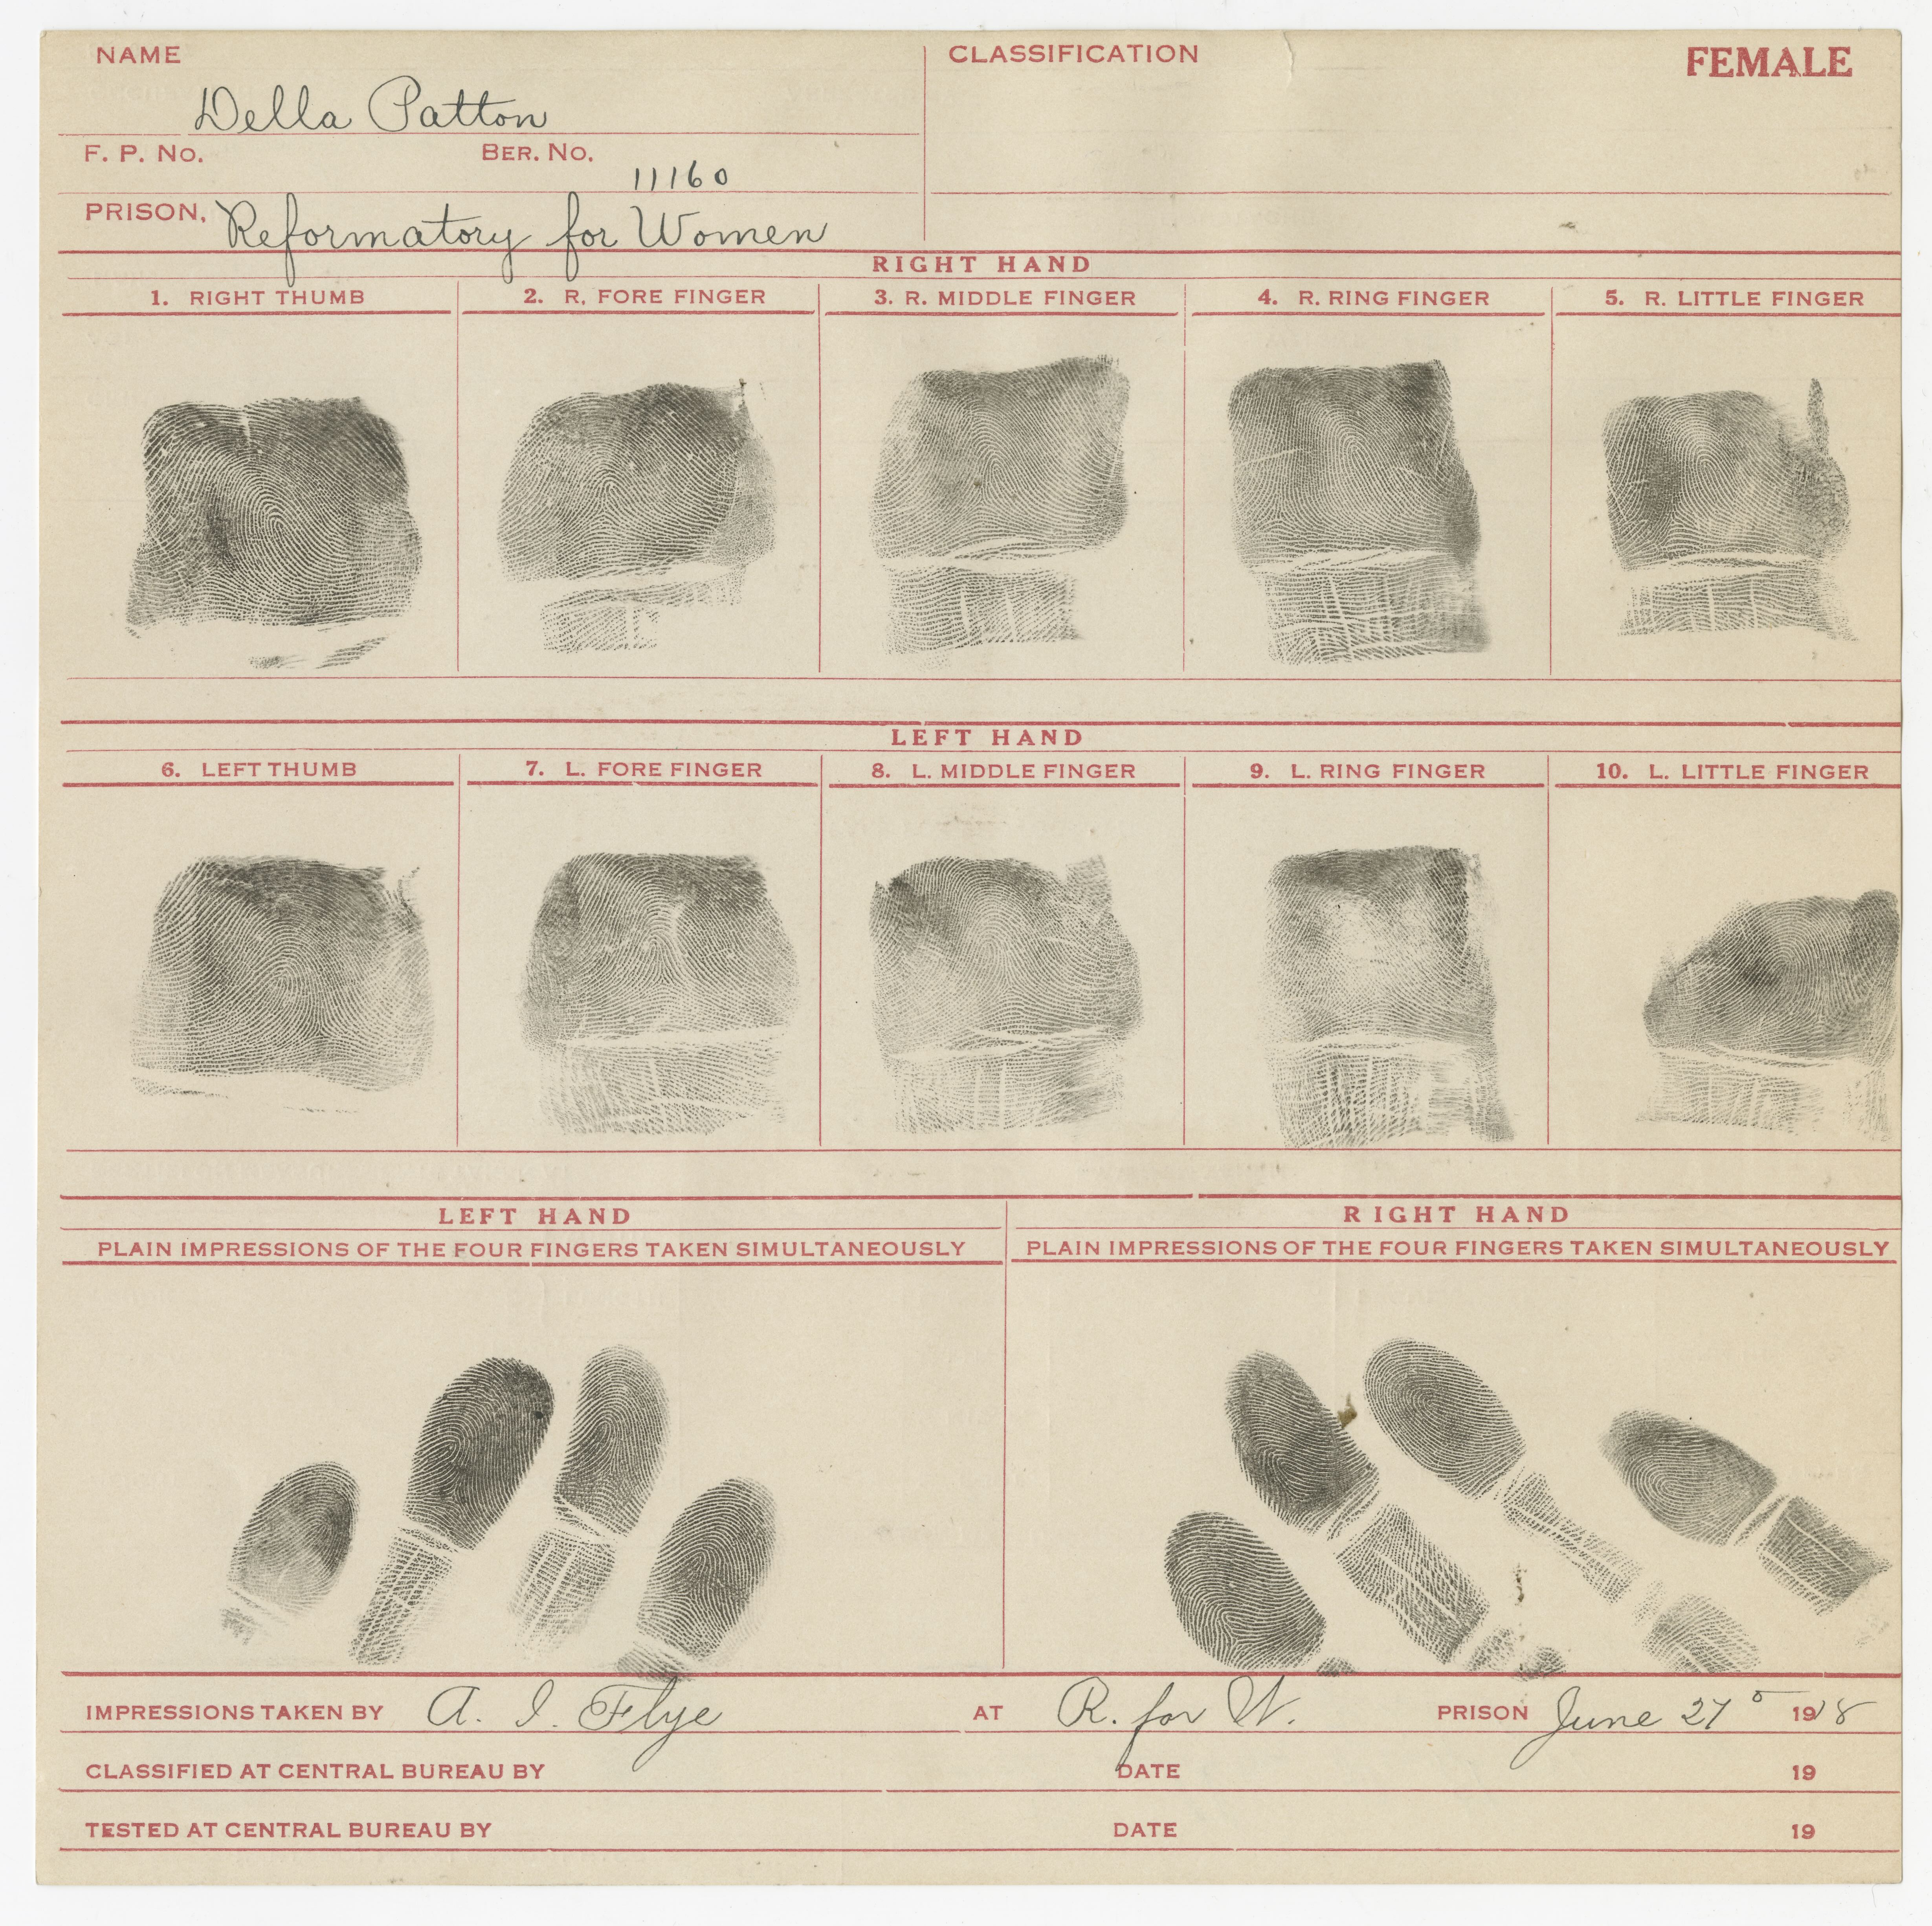 NAME
CLASSIFICATION
FEMALE
Della Patton
F. P. No.
BER. No.
11160
PRISON, Reformatory for Women
RIGHT HAND
1. RIGHT THUMB
2. R, FORE FINGER
3. R. MIDDLE FINGER
4. R. RING FINGER
5. R. LITTLE FINGER
LEFT HAND
6. LEFT THUMB
7. L. FORE FINGER
8. L. MIDDLE FINGER
9. L. RING FINGER
10. L. LITTLE FINGER
LEFT HAND
PLAIN IMPRESSIONS OF THE FOUR FINGERS TAKEN SIMULTANEOUSLY
RIGHT HAND
PLAIN IMPRESSIONS OF THE FOUR FINGERS TAKEN SIMULTANEOUSLY
IMPRESSIONS TAKEN BY A. I. Flye AT R. for W. PRISON June 27 1918
CLASSIFIED AT CENTRAL BUREAU BY DATE 19
TESTED AT CENTRAL BUREAU BY DATE 19